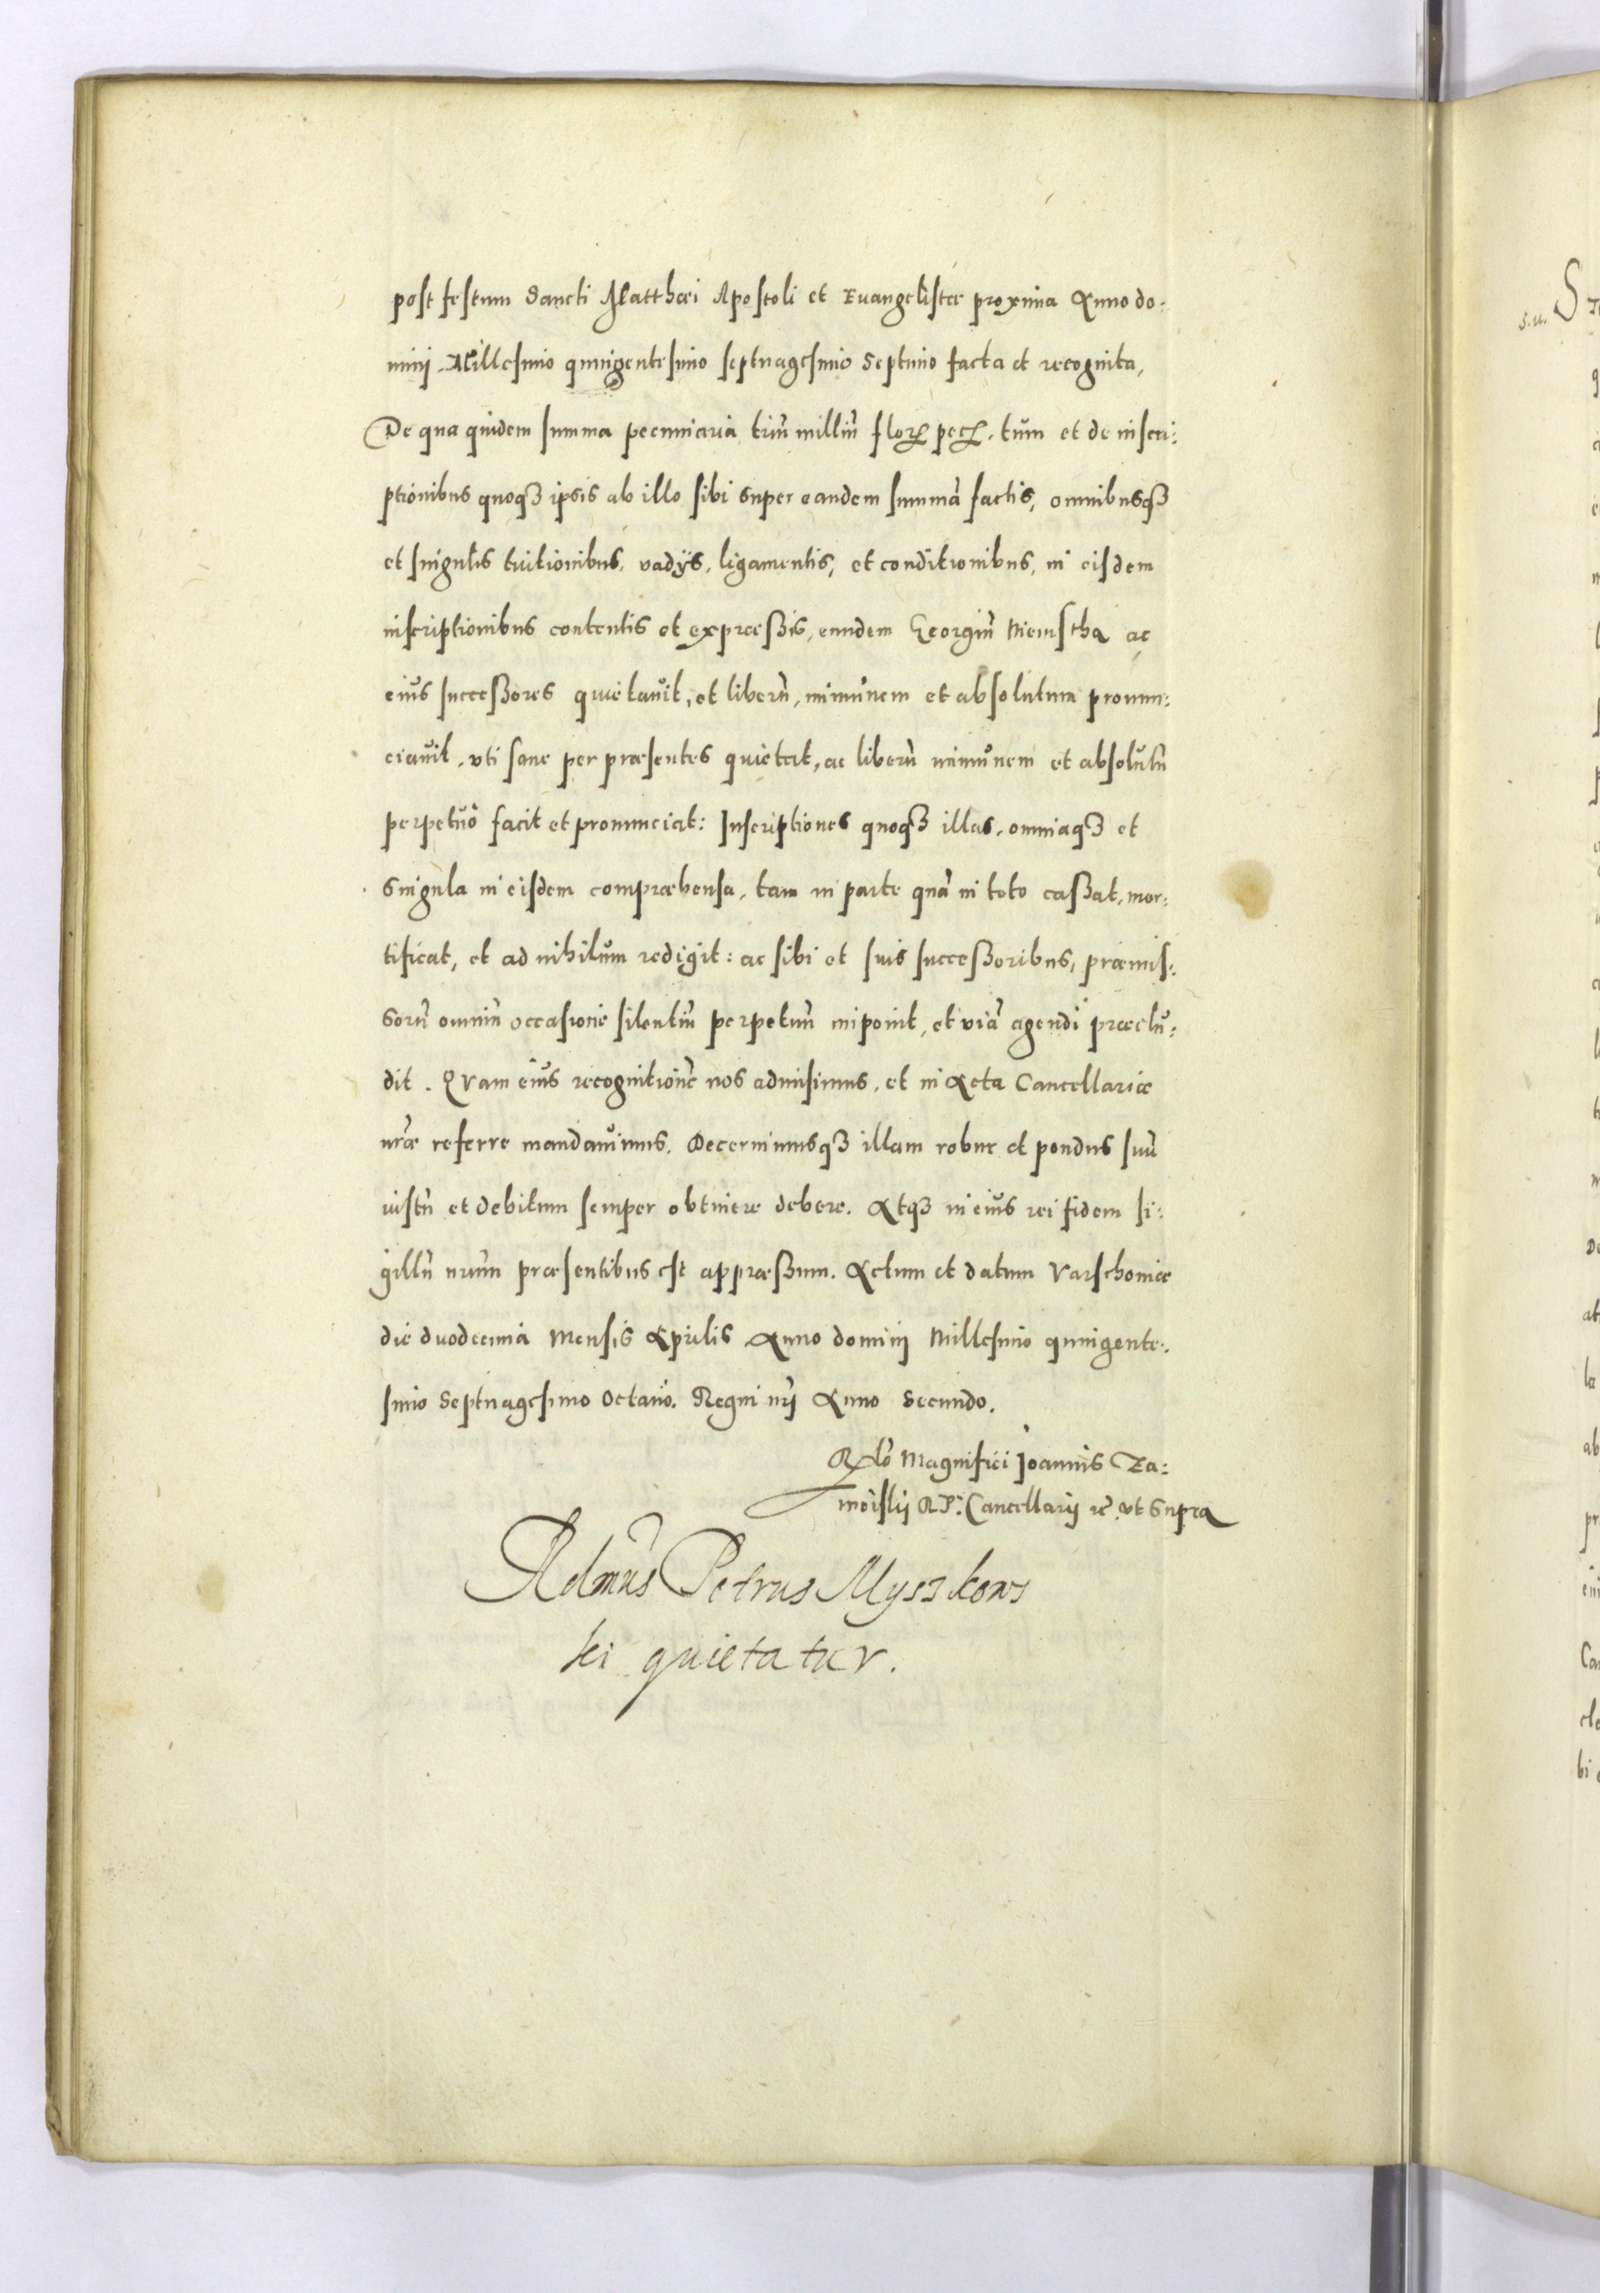 post festum Sancti Matthæi Apostoli et Euangelistæ proxima Anno do:
minij Millesimo quingentesimo septuagesimo Septimo facta et recognita,
De qua quidem summa pecuniaria triũ milliũ floꝝ pecꝝ. tum et de inscri:
ptionibus quoqȝ ipsis ab illo sibi super eandem summã factis, omnibusqȝ
et singulis tuitionibus, vadijs, ligamentis, et conditionibus, in eisdem
inscriptionibus contentis et expræssis, eundem Georgiũ Niemstha ac
eius successores quietauit, et liberũ, immunem et absolutum pronun:
ciauit, vti sane per præsentes quietat, ac liberũ immunem et absolutũ
perpetuò facit et pronunciat: Inscriptiones quoqȝ illas, omniaqȝ et
singula in eisdem compræhensa, tam in parte quã in toto cassat, mor:
tificat, et ad nihilum redigit: ac sibi et suis successoribus, præmis:
sorũ omniũ occasione silentiũ perpetuũ imponit, et viã agendi præclu:
dit. Quam eius recognitionẽ nos admisimus, et in Acta Cancellariæ
nr̃æ referre mandauimus. Decernimusqȝ illam robur et pondus suũ
iustũ et debitum semper obtinere debere. Atqȝ in eius rei fidem si:
gillũ nr̃um præsentibus est appræssum. Actum et datum Varschouiæ
die duodecima Mensis Aprilis Anno dominij Millesimo quingente:
simo Septuagesimo Octauo. Regni nr̃i Anno Secundo.
Rlõ Magnifici Ioannis Za:
moislij R P: Cancellarij rẽ. vt supra
Rdmus Petrus Mysskows
ki quietatur.
s.u. S